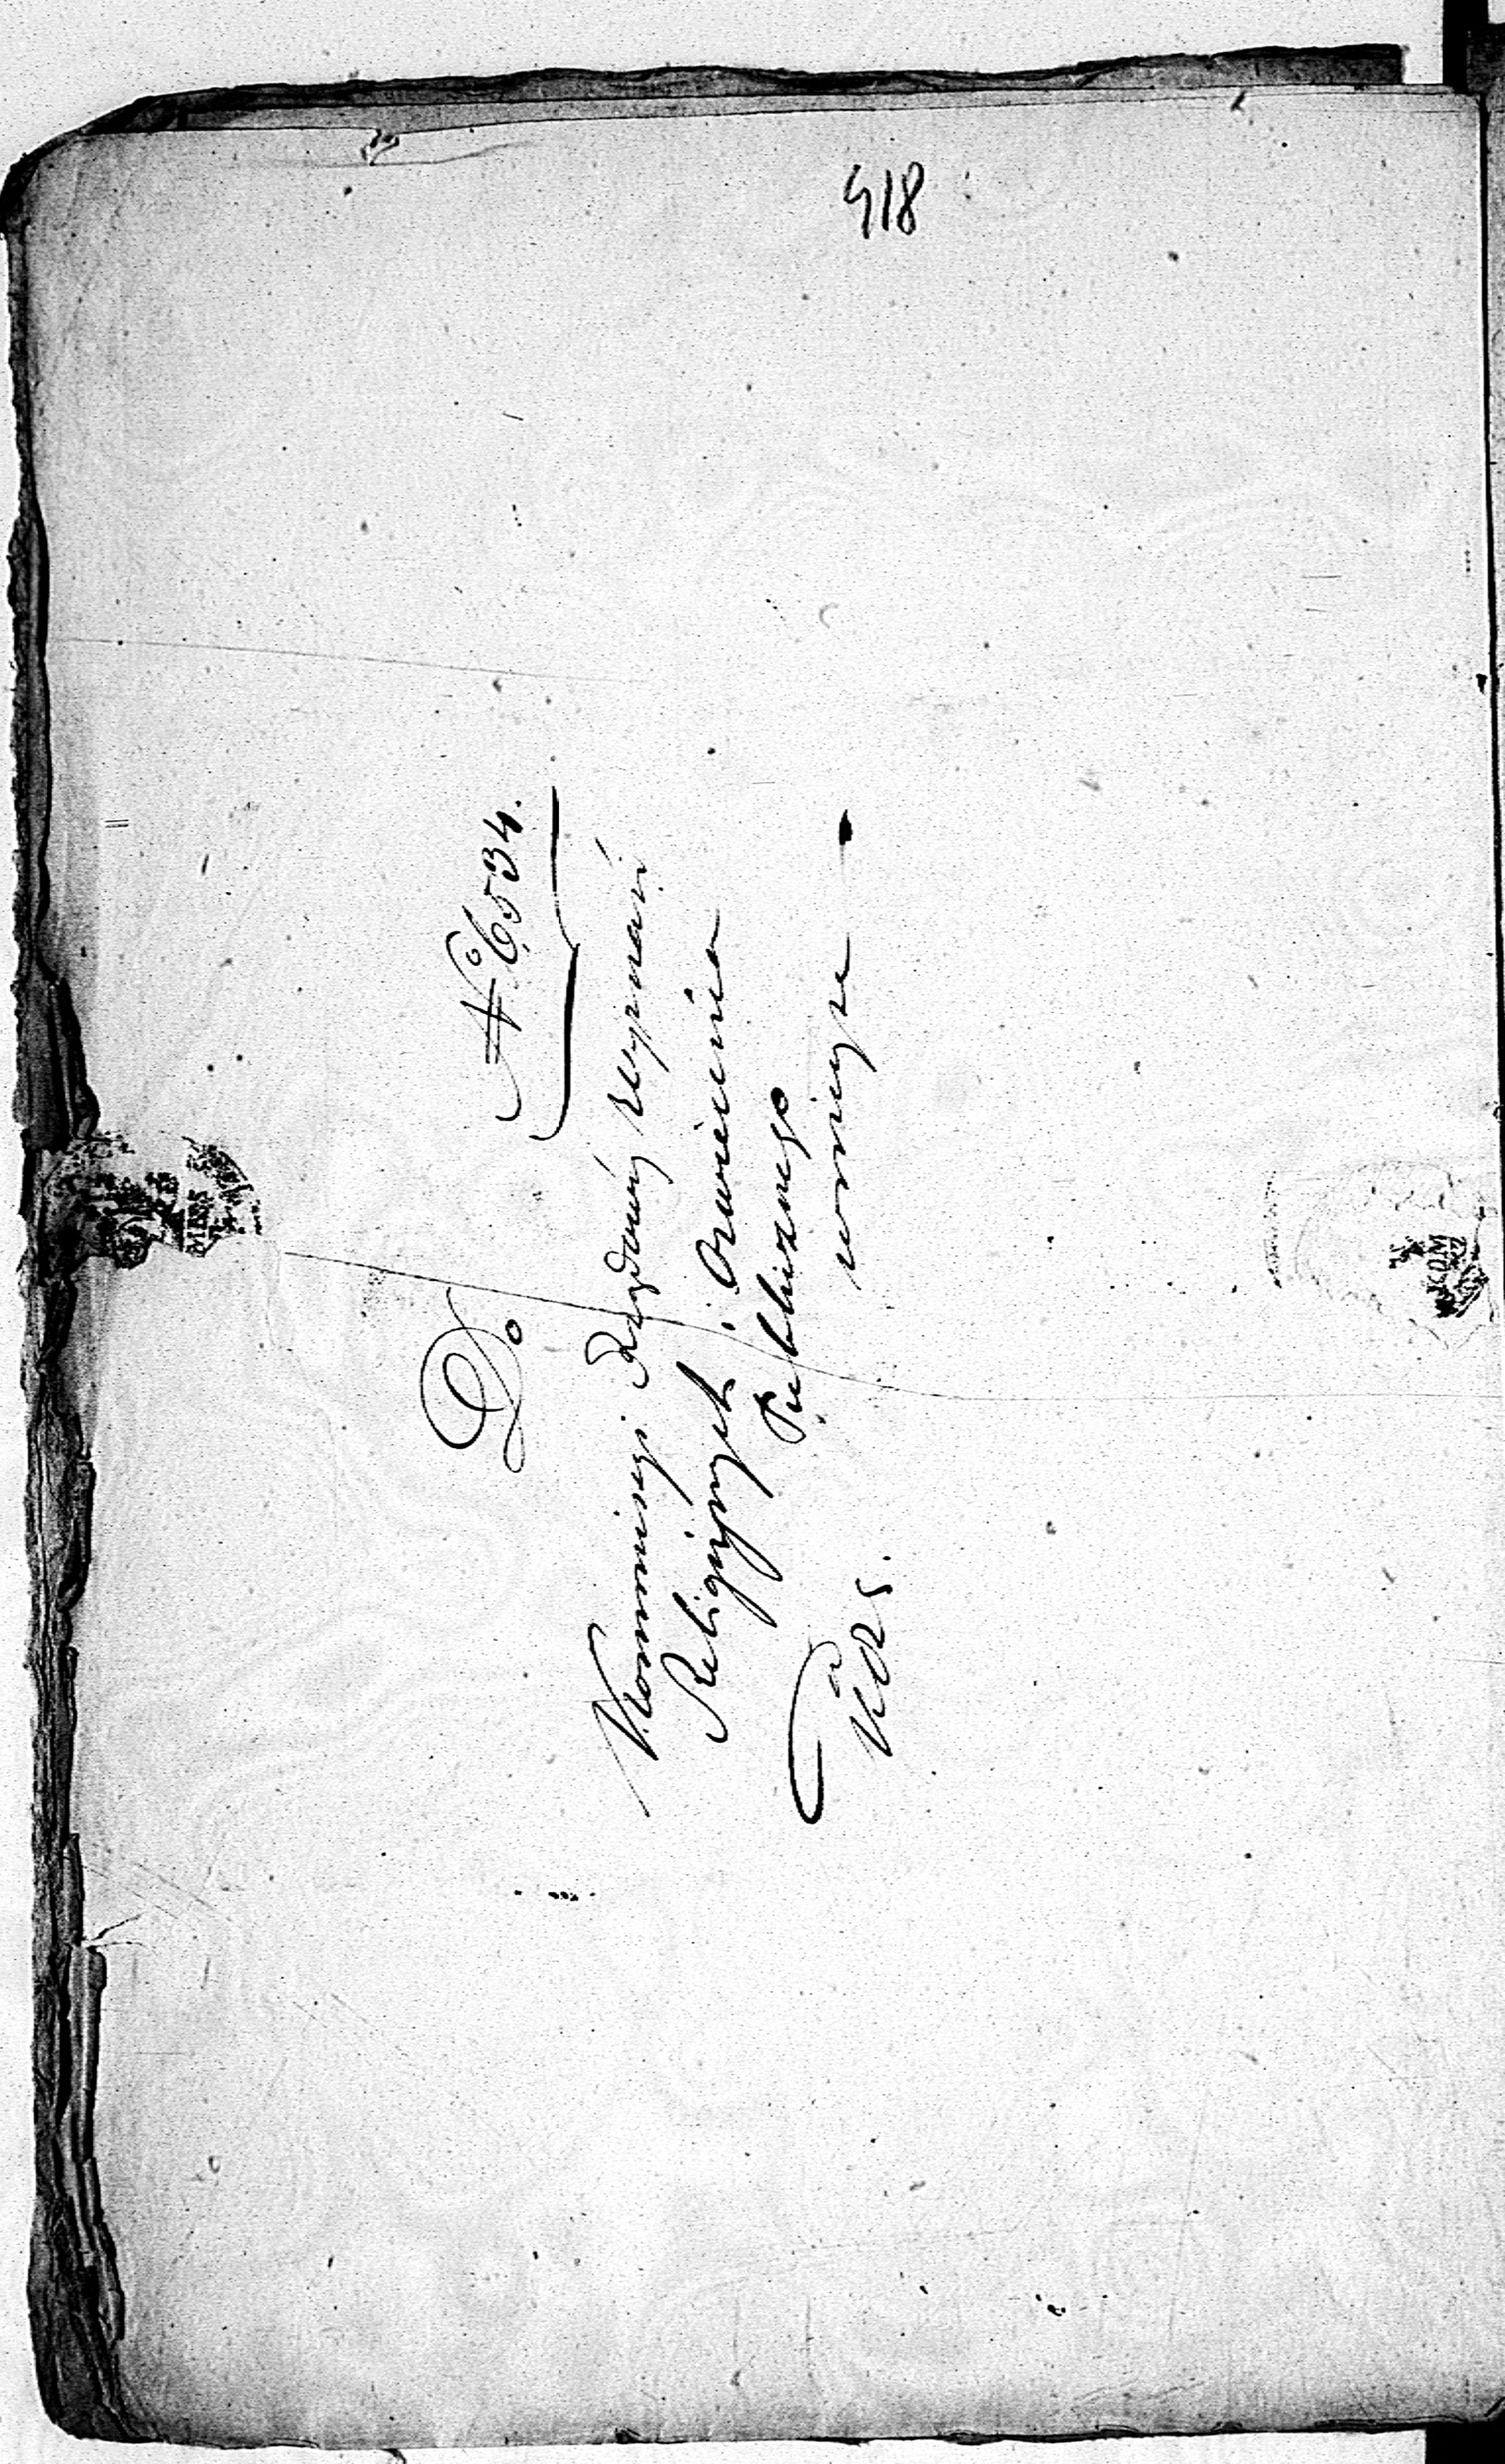 418
№ 6534.
Do
Kommissyi Rządowéy Wyznań
Religiynych i Oswiecenia
Publicznego
w mieyscu